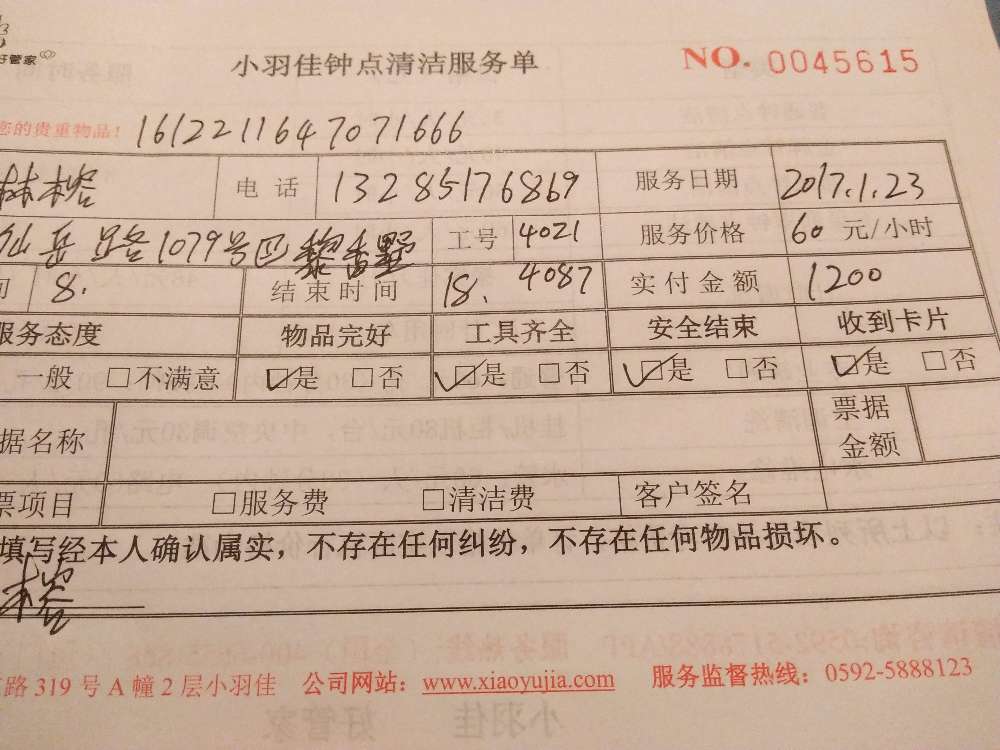 好管家
小羽佳钟点清洁服务单 NO. 0045615
您的贵重物品! 1612211647071666
林榕 电话 13285176869 服务日期 2017.1.23
仙岳路1079号四黎香墅 工号 4021 服务价格 60 元/小时
间 8. 结束时间 18. 4087 实付金额 1200
服务态度 物品完好 工具齐全 安全结束 收到卡片
一般 □不满意 ☑是 □否 ☑是 □否 ☑是 □否 ☑是 □否
据名称 票据金额
票项目 □服务费 □清洁费 客户签名
填写经本人确认属实，不存在任何纠纷，不存在任何物品损坏。
榕
路 319 号 A 幢 2 层小羽佳 公司网站：www.xiaoyujia.com 服务监督热线：0592-5888123